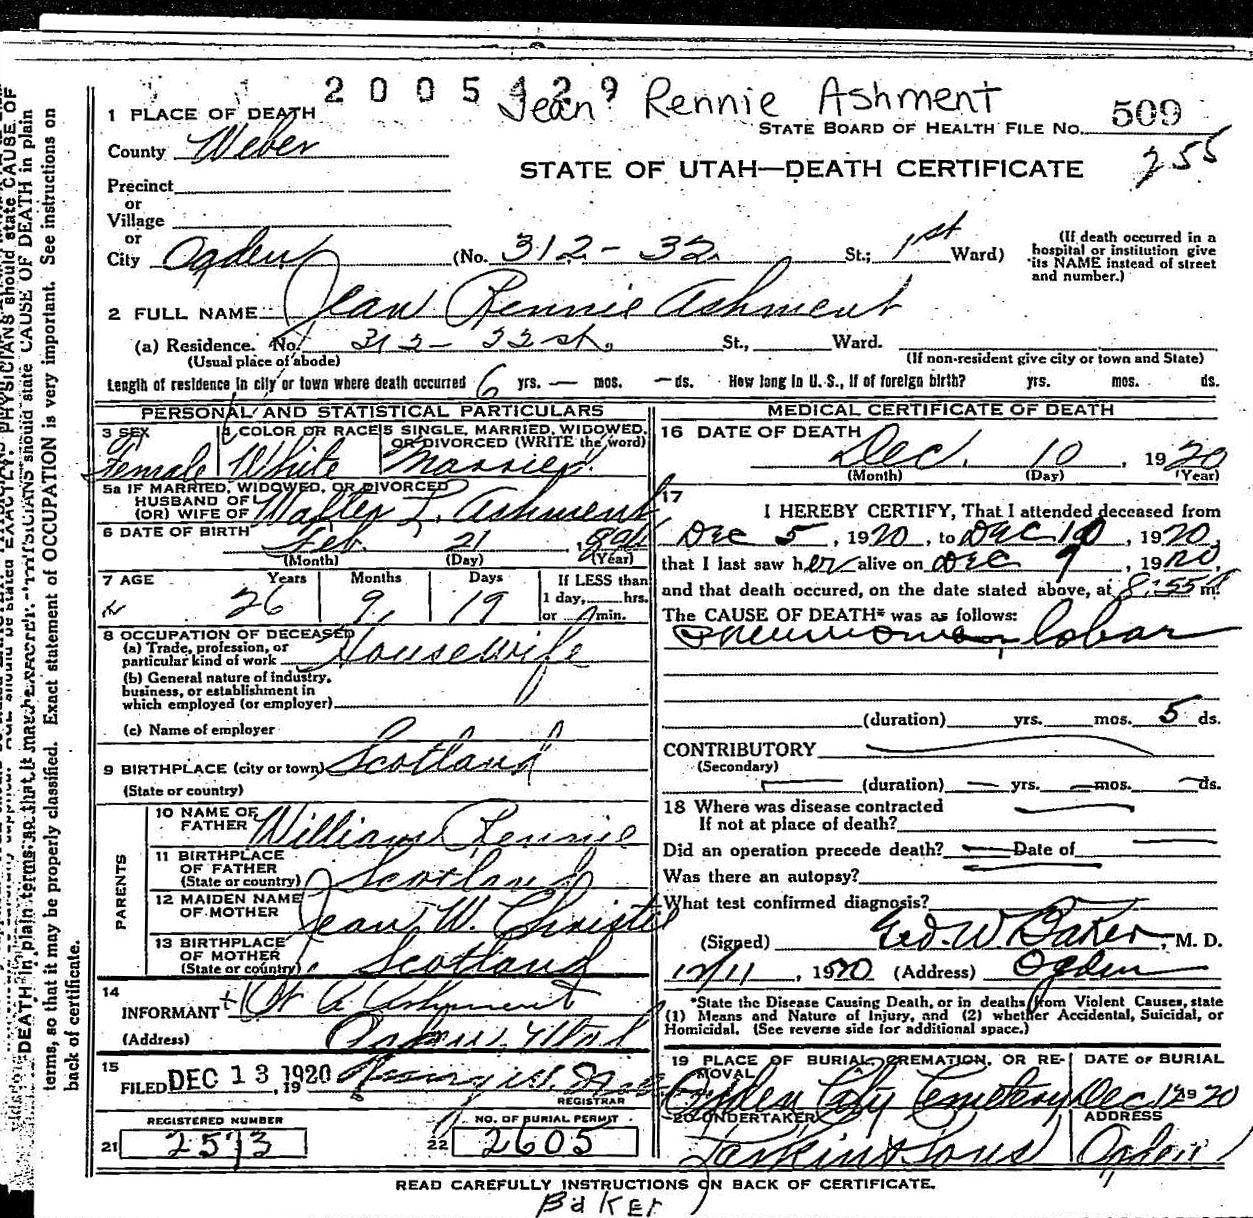 2005429
Jean Rennie Ashment
1 PLACE OF DEATH
STATE BOARD OF HEALTH FILE No. 509
County Weber
255
STATE OF UTAH—DEATH CERTIFICATE
Precinct
or
Village
or
City Ogden (No. 312 - 32 St.; 1st Ward)
(If death occurred in a hospital or institution give its NAME instead of street and number.)
2 FULL NAME Jean Rennie Ashment
(a) Residence. No. 312 - 32 st. St., Ward.
(Usual place of abode) (If non-resident give city or town and State)
Length of residence in city or town where death occurred 6 yrs. — mos. — ds. How long in U. S., if of foreign birth? yrs. mos. ds.
PERSONAL AND STATISTICAL PARTICULARS
3 SEX Female
4 COLOR OR RACE White
5 SINGLE, MARRIED, WIDOWED, OR DIVORCED (WRITE the word) Married
5a IF MARRIED, WIDOWED, OR DIVORCED
HUSBAND OF
(OR) WIFE OF Walter L. Ashment
6 DATE OF BIRTH Feb. 21
(Month) (Day) (Year)
7 AGE Years Months Days If LESS than
26 9 19 1 day, hrs.
or min.
8 OCCUPATION OF DECEASED
(a) Trade, profession, or
particular kind of work Housewife
(b) General nature of industry,
business, or establishment in
which employed (or employer)
(c) Name of employer
9 BIRTHPLACE (city or town) Scotland
(State or country)
PARENTS
10 NAME OF FATHER William Rennie
11 BIRTHPLACE OF FATHER (State or country) Scotland
12 MAIDEN NAME OF MOTHER Jean W. Christie
13 BIRTHPLACE OF MOTHER (State or country) Scotland
14
INFORMANT Ashment
(Address) Ogden, Utah
15
FILED DEC 13 1920, 19
REGISTRAR
REGISTERED NUMBER
21 2573
NO. OF BURIAL PERMIT
22 2605
MEDICAL CERTIFICATE OF DEATH
16 DATE OF DEATH
Dec. 10, 1920
(Month) (Day) (Year)
17
I HEREBY CERTIFY, That I attended deceased from
Dec 5, 1920, to Dec 10, 1920,
that I last saw her alive on Dec 9, 1920
and that death occured, on the date stated above, at 8:55 m.
The CAUSE OF DEATH* was as follows:
Pneumonia, lobar
(duration) yrs. mos. 5 ds.
CONTRIBUTORY
(Secondary)
(duration) — yrs. — mos. — ds.
18 Where was disease contracted
If not at place of death?
Did an operation precede death? — Date of —
Was there an autopsy?
What test confirmed diagnosis?
(Signed) Geo. W Baker, M. D.
12/11, 1920 (Address) Ogden
*State the Disease Causing Death, or in deaths from Violent Causes, state
(1) Means and Nature of Injury, and (2) whether Accidental, Suicidal, or
Homicidal. (See reverse side for additional space.)
19 PLACE OF BURIAL, CREMATION, OR REMOVAL
Ogden City Cemetery
DATE OF BURIAL
Dec 12 1920
20 UNDERTAKER
Larkin & Sons
ADDRESS
Ogden
READ CAREFULLY INSTRUCTIONS ON BACK OF CERTIFICATE.
Baker
DEATH in plain terms, so that it may be properly classified. Exact statement of OCCUPATION is very important. See instructions on
back of certificate.